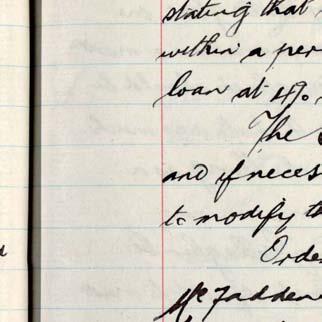 stating that
within a per
loan at 4%
The
and if neces
to modify th
Orde
Mc Fadden